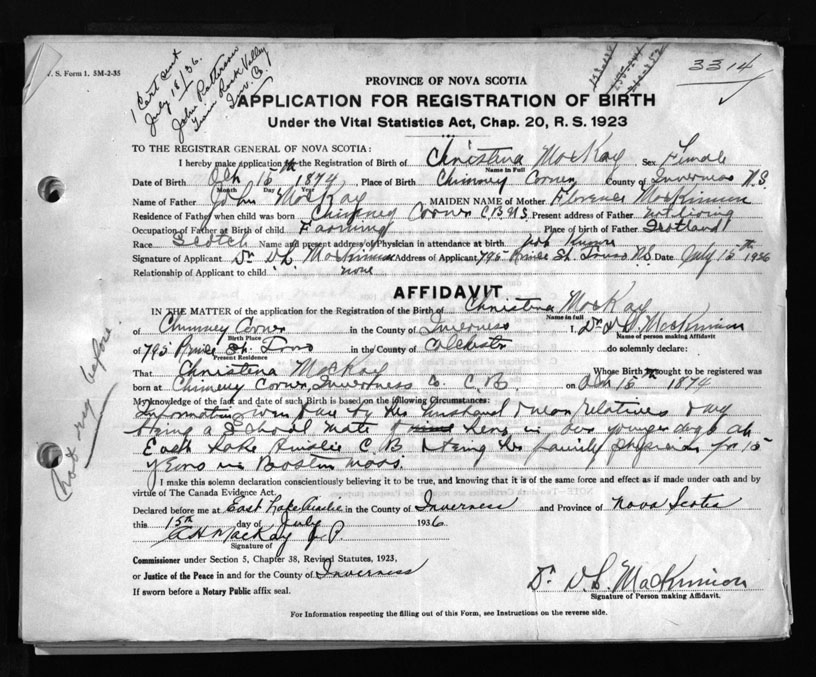 V. S. Form 1. 5M-2-35
1 Cert sent
July 18/36.
John Patterson
Inv. Co.
3314
PROVINCE OF NOVA SCOTIA
APPLICATION FOR REGISTRATION OF BIRTH
Under the Vital Statistics Act, Chap. 20, R. S. 1923
TO THE REGISTRAR GENERAL OF NOVA SCOTIA:
I hereby make application for the Registration of Birth of Christena MacKay Sex Female
Name in Full
Date of Birth 15th 1874, Place of Birth Chimney Corner County of Inverness N.S.
Month Day Year
Name of Father John MacKay MAIDEN NAME of Mother Florence MacKinnon
Residence of Father when child was born Chimney Corner C.B. N.S. Present address of Father not living
Occupation of Father at Birth of child Farming Place of birth of Father Scotland
Race Scotch Name and present address of Physician in attendance at birth not known
Signature of Applicant Dr D L MacKinnon Address of Applicant 795 Prince St. Truro N.S. Date July 15th 1936
Relationship of Applicant to child none
AFFIDAVIT
IN THE MATTER of the application for the Registration of the Birth of Christena MacKay
Name in full
of Chimney Corner in the County of Inverness I, Dr D L MacKinnon
Birth Place Name of person making Affidavit
of 795 Prince St. Truro in the County of Colchester do solemnly declare:
Present Residence
That Christena MacKay Whose Birth is sought to be registered was
born at Chimney Corner, Inverness Co. C.B. on 15th 1874
My knowledge of the fact and date of such Birth is based on the following Circumstances:
Information given me by her husband & near relatives
being a School mate of hers in our younger days at
East Lake Ainslie C.B. being her family physician for 15
years in Boston Mass.
I make this solemn declaration conscientiously believing it to be true, and knowing that it is of the same force and effect as if made under oath and by
virtue of The Canada Evidence Act.
Declared before me at East Lake Ainslie in the County of Inverness and Province of Nova Scotia
this 15th day of July 1936
MacKay J P
Signature of
Commissioner under Section 5, Chapter 38, Revised Statutes, 1923,
or Justice of the Peace in and for the County of Inverness
If sworn before a Notary Public affix seal.
Dr. D L MacKinnon
Signature of Person making Affidavit.
For Information respecting the filling out of this Form, see Instructions on the reverse side.
not reg before.